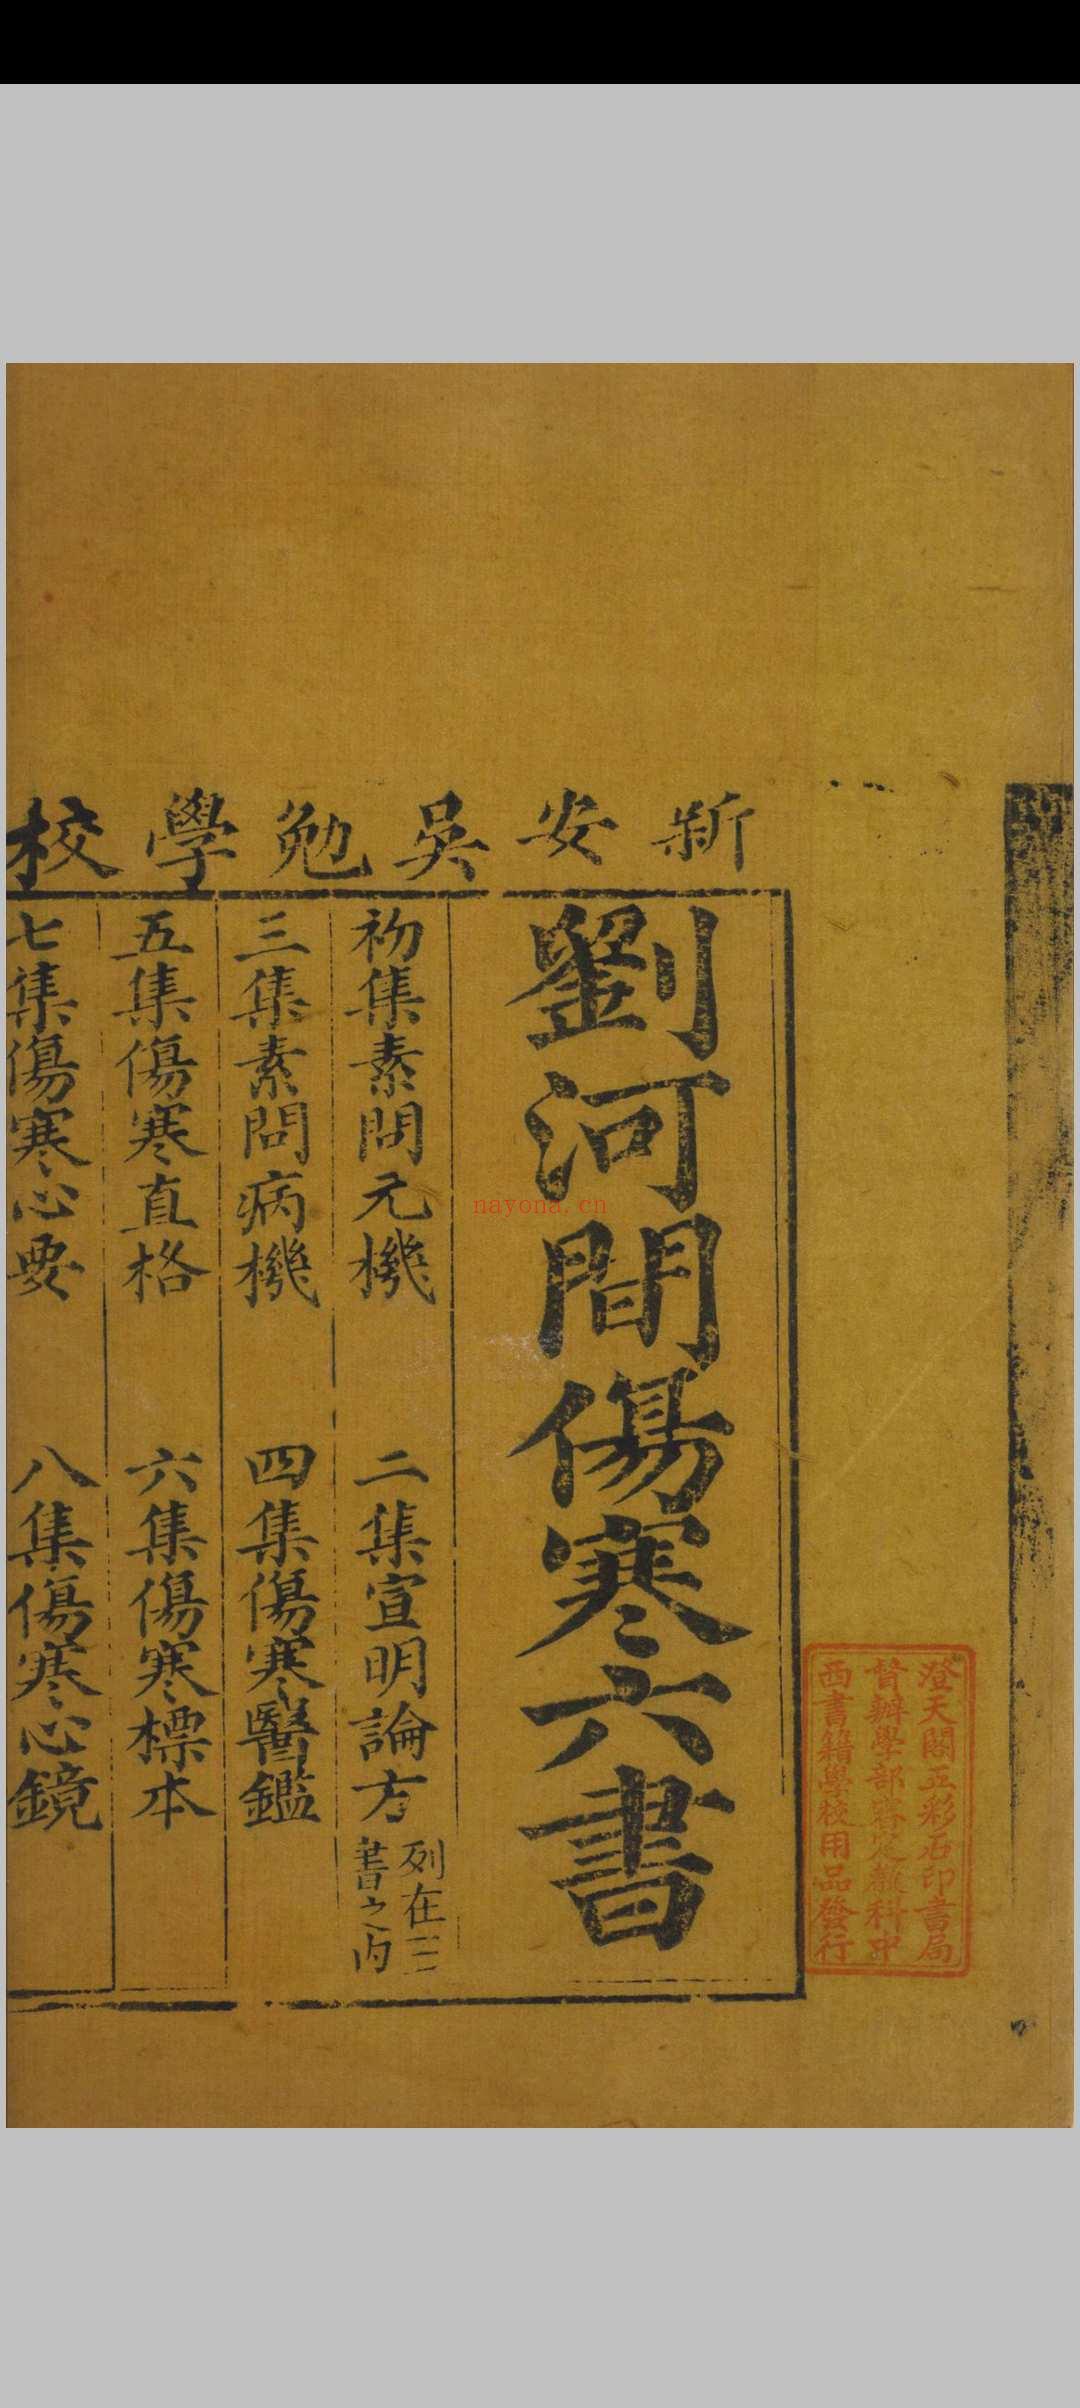 新安吳勉學校
劉河間傷寒六書
初集素問元機 二集宣明論方 列在三書之內
三集素問病機 四集傷寒醫鑑
五集傷寒直格 六集傷寒標本
七集傷寒心要 八集傷寒心鏡
澄天閣五彩石印書局
督辦學部審定教科中
西書籍學校用品發行
nayona.cn